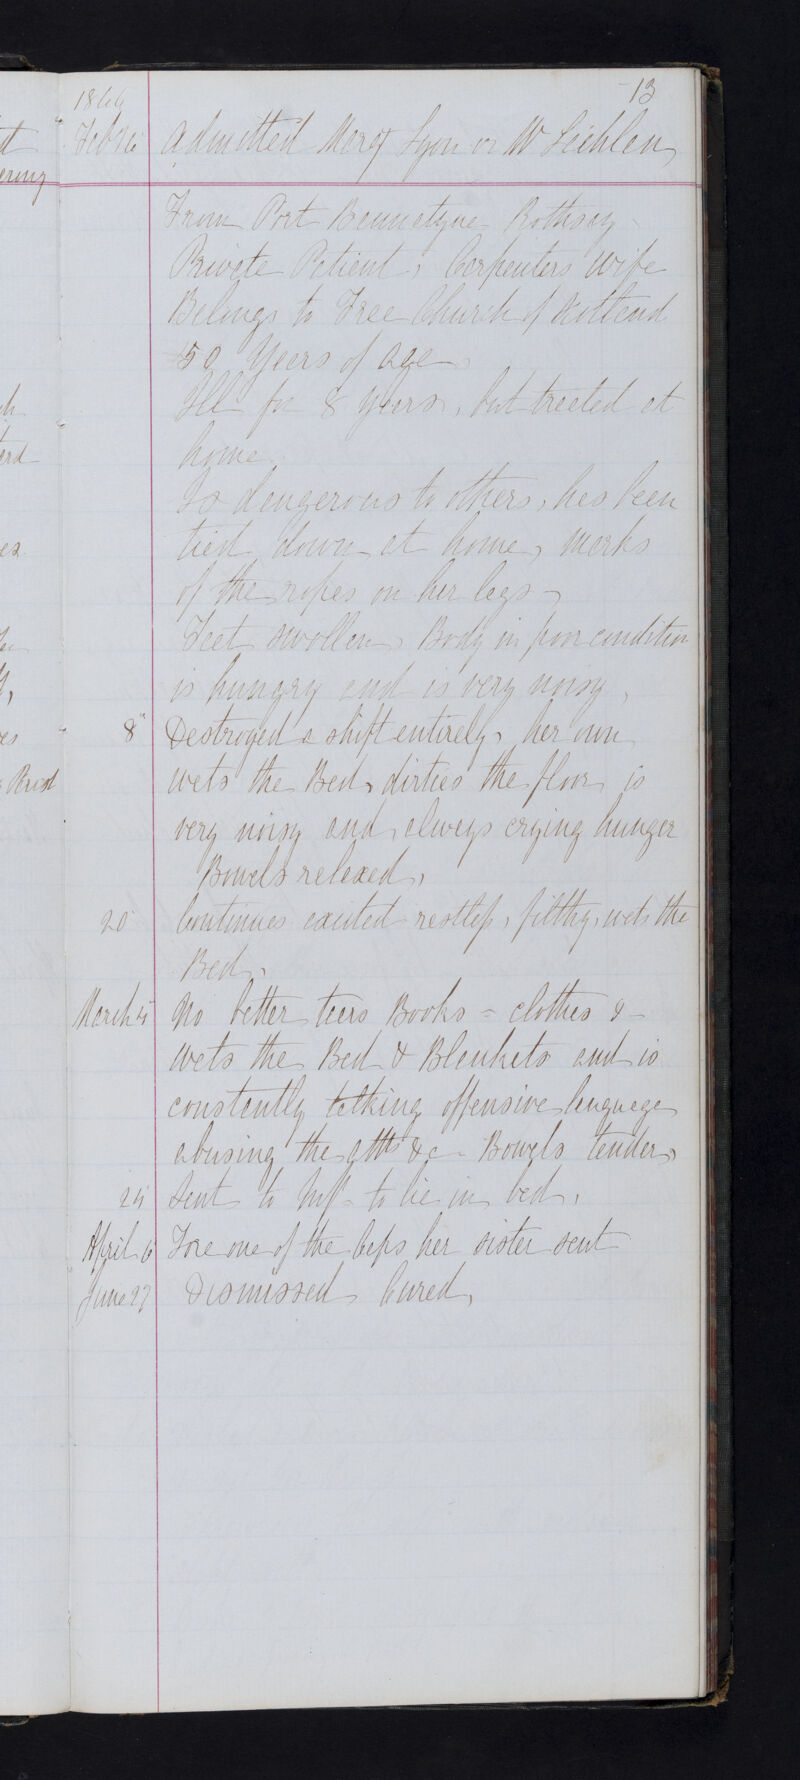 13
1866
Feb 6 Admitted Margt Lyon or McLachlan
From Port Bannatyne Rothsay
Private Patient, Carpenters wife
Belongs to Free Church of Scotland
50 Years of age
Ill for 8 years, but treated at
home.
Is dangerous to others, has been
tied down at home, marks
of the ropes on her legs -
Feet swollen, Body in poor condition
is hungry and is very noisy,
8" Destroyed a shift entirely, her own
wets the Bed, dirties the floor, is
very noisy and always crying hunger
Bowels relaxed,
20 Continues excited restless, filthy, wets the
Bed.
March 5 No better tears Books - clothes &
wets the Bed & Blankets and is
constantly talking offensive language
abusing the atts &c - Bowels tender,
25 Sent to Inf - to lie in bed.
April 6 Tore one of the Caps her sister sent
June 27 Dismissed Cured,